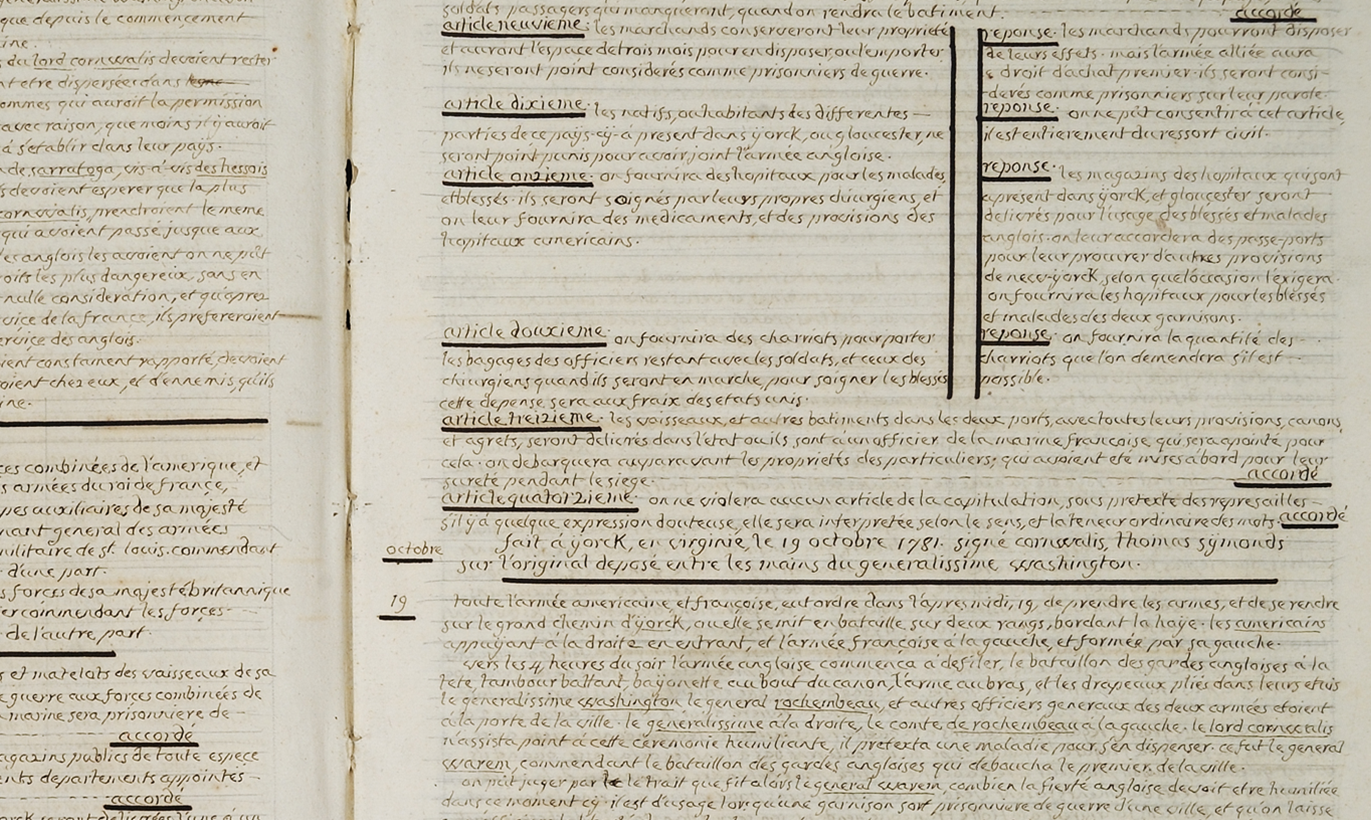 que depuis le commencement
ine.
du lord cornwalis devoient rester
nt etre dispersées dans
ommes qui auroit la permission
avec raison, que moins il y auroit
à s'etablir dans leur pays.
de sarratoga, vis-à-vis des hessois
s devoient esperer que la plus
cornwalis, prendroient le meme
qui avoient passé jusque aux
les anglois les avoient on ne pût
oits les plus dangereux, sans en
nulle consideration, et qu'après
vice de la france, ils prefereroient
ervice des anglois.
ient constament rapporté, devoient
oient chez eux, et d'ennemis, qu'ils
ine.
ces combinées de l'amerique, et
s armées du roi de france,
pes auxiliaires de sa majesté
nant general des armées
militaire de st. louis. commendant
d'une part.
s forces de sa majesté britannique
er commendant les forces
de l'autre, part.
s et matelots des vaisseaux de sa
e guerre aux forces combinées de
marine sera prisonniere de
accordé
agazins publics de toute espece
ents departements appointés
accordé
soldats passagers qui manqueront, quand on rendra le batiment.
accordé
article neuvieme. les marchands conserveront leur propriété
et auront l'espace de trois mois pour en disposer, ou l'emporter.
ils ne seront point considerés comme prisonniers de guerre.
reponse. les marchands pourront disposer
de leurs effets. mais l'armée alliée aura
e droit d'achat premier. ils seront consi-
derés comme prisonniers sur leur parole.
article dixieme. les natifs, ou habitants des differentes
parties de ce pays-cy à present dans yorck, ou gloucester, ne
seront point punis pour avoir joint l'armée angloise.
reponse. on ne pût consentir à cet article,
il est entierement du ressort civil.
article onzieme. on fournira des hopitaux pour les malades
et blessés. ils seront soignés par leurs propres chirurgiens, et
on leur fournira des medicaments, et des provisions des
hopitaux americains.
reponse. les magazins des hopitaux qui sont
apresent dans yorck, et gloucester seront
delivrés pour l'usage des blessés et malades
anglois. on leur accordera des passe-ports
pour leur procurer d'autres provisions
de new-yorck, selon que l'occasion l'exigera.
on fournira les hopitaux pour les blessés
et malades des deux garnisons.
article douxieme. on fournira des charriots pour porter
les bagages des officiers restant avec les soldats, et ceux des
chirurgiens quand ils seront en marche, pour soigner les blessés
cette depense sera aux fraix des etats unis.
reponse. on fournira la quantité des
charriots que l'on demendera s'il est
possible.
article treizieme. les vaisseaux, et autres batiments dans les deux ports, avec toutes leurs provisions, canons,
et agrets, seront delivrés dans l'etat ou ils sont à un officier de la marine françoise, qui sera apointé pour
cela. on debarquera auparavant les propriétés des particuliers; qui avoient eté mises à bord pour leur
sureté pendant le siege. accordé
article quatorzieme. on ne violera aucun article de la capitulation, sous pretexte des represailles
s'il y a quelque expression douteuse, elle sera interpretée selon le sens, et la teneur ordinaire des mots. accordé
octobre
fait à yorck, en virginie, le 19 octobre 1781. signé cornwalis, thomas symonds
sur l'original deposé entre les mains du generalissime washington.
19
toute l'armée americaine, et françoise, eut ordre dans l'apres midi, 19, de prendre les armes, et de se rendre
sur le grand chemin d'yorck, ou elle se mit en bataille, sur deux rangs, bordant la haye. les americains
appuyant à la droite en entrant, et l'armée françoise à la gauche, et formée, par sa gauche.
vers les 4 heures du soir l'armée angloise commenca a defiler, le bataillon des gardes angloises à la
tete, tambour battant, bayonette au bout du canon, l'arme au bras, et les drapeaux pliés dans leurs etuis
le generalissime washington le general rochembeau, et autres officiers generaux des deux armées etoient
à la porte de la ville. le generalissime à la droite, le comte de rochembeau à la gauche. le lord cornwalis
n'assista point à cette ceremonie humiliante, il pretexta une maladie pour s'en dispenser. ce fut le general
warem, commendant le bataillon des gardes angloises qui deboucha le premier de la ville.
on pût juger par le trait que fit alors le general warem, combien la fierté angloise devoit etre humiliée
dans ce moment cy. il est d'usage lorsqu'une garnison sort prisonniere de guerre d'une ville, et qu'on laisse